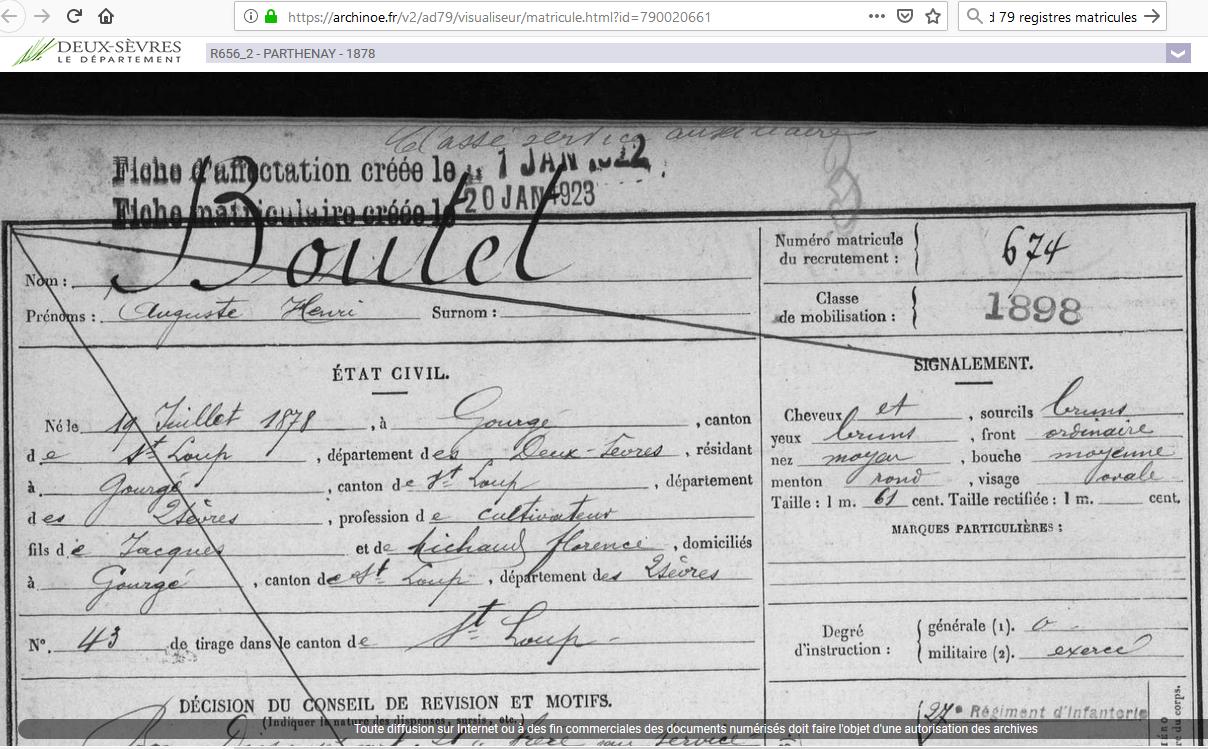 https://archinoe.fr/v2/ad79/visualiseur/matricule.html?id=790020661
d 79 registres matricules
DEUX-SÈVRES
LE DÉPARTEMENT
R656_2 - PARTHENAY - 1878
Classé service auxiliaire
Fiche d'affectation créée le 1 JAN 1922
Fiche matriculaire créée le 20 JAN 1923
Nom : Boutet
Prénoms : Auguste Henri Surnom :
Numéro matricule du recrutement : 674
Classe de mobilisation : 1898
ÉTAT CIVIL.
Né le 19 Juillet 1878, à Gourgé, canton
de St Loup, département des Deux-Sèvres, résidant
à Gourgé, canton de St Loup, département
des 2 Sèvres, profession de cultivateur
fils de Jacques et de Michaud Florence, domiciliés
à Gourgé, canton de St Loup, département des 2 Sèvres
N°. 43 de tirage dans le canton de St Loup -
SIGNALEMENT.
Cheveux et, sourcils bruns
yeux bruns, front ordinaire
nez moyen, bouche moyenne
menton rond, visage ovale
Taille : 1 m. 61 cent. Taille rectifiée : 1 m. cent.
MARQUES PARTICULIÈRES :
Degré d'instruction :
générale (1). 0
militaire (2). exercé
DÉCISION DU CONSEIL DE REVISION ET MOTIFS.
(Indiquer la nature des dispenses, sursis, etc.)
27e Régiment d'Infanterie
du corps.
Toute diffusion sur Internet ou à des fin commerciales des documents numérisés doit faire l'objet d'une autorisation des archives